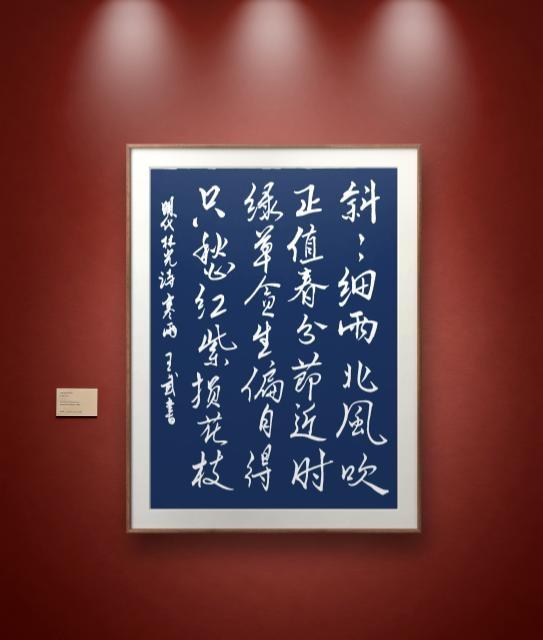 斜〻细雨北风吹
正值春分节近时
绿草贪生偏自得
只愁红紫损花枝
明代林光诗寒雨 王武书